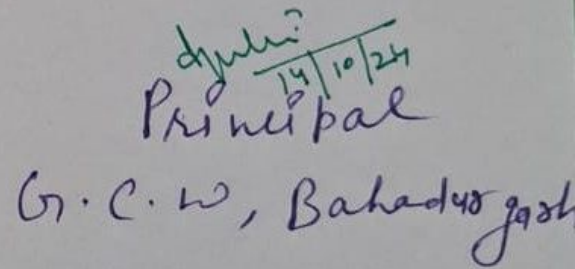 14/10/24
Principal
G.C.W, Bahadurgarh